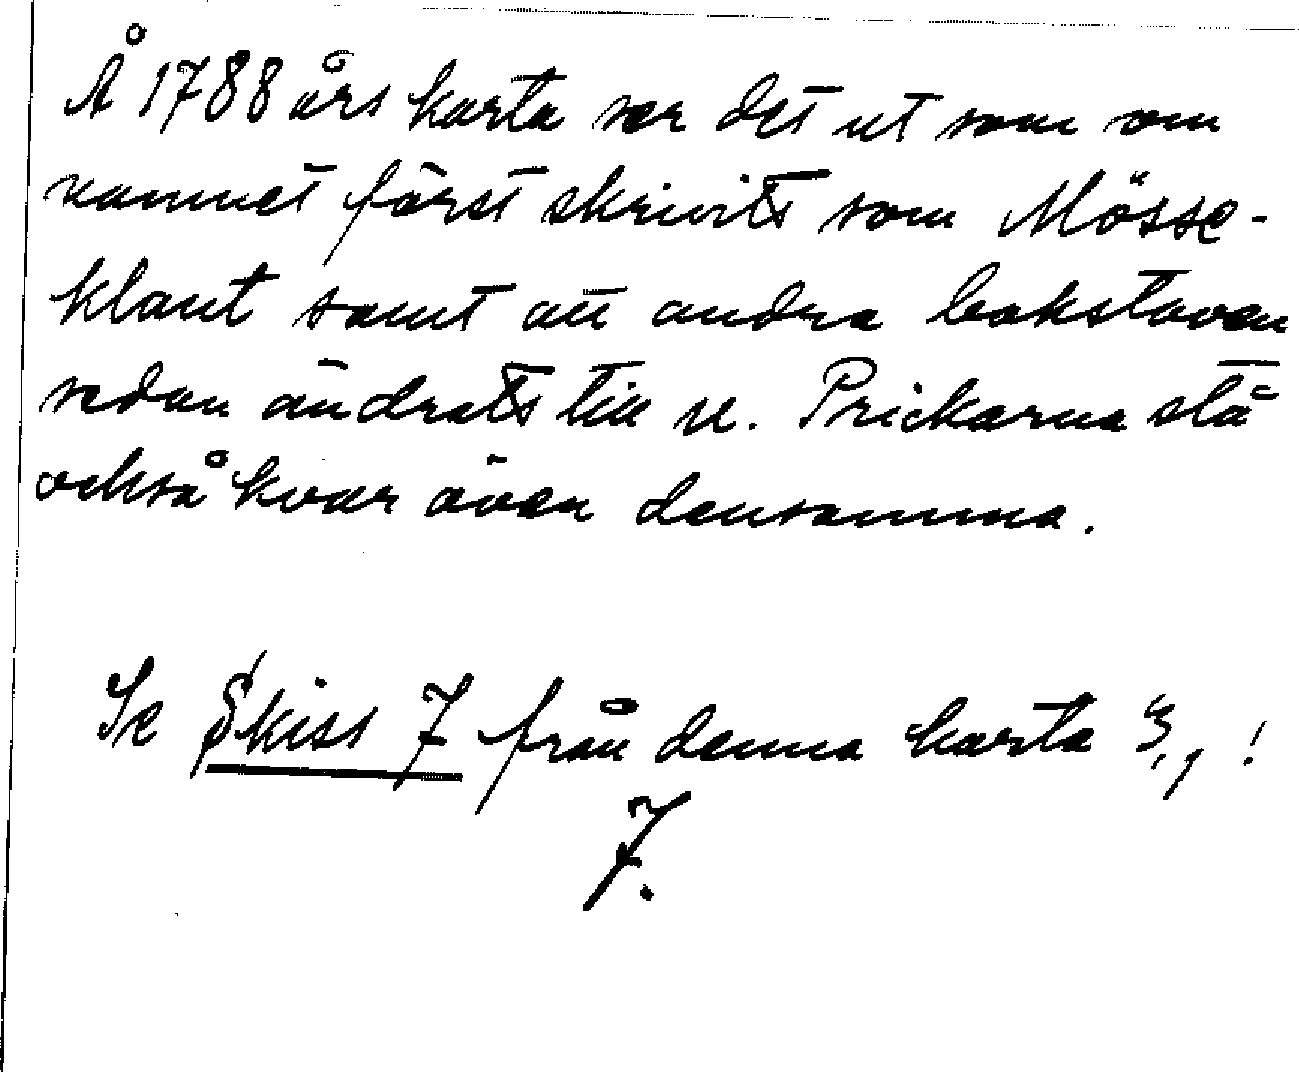 Å 1788 års karta ser det ut som om
namnet först skrivits som Mösse-
klaut samt att andra bokstaven
sedan ändrats till e. Prickarna stå
också kvar över densamma.
Se Skiss 7 från denna karta !
7.